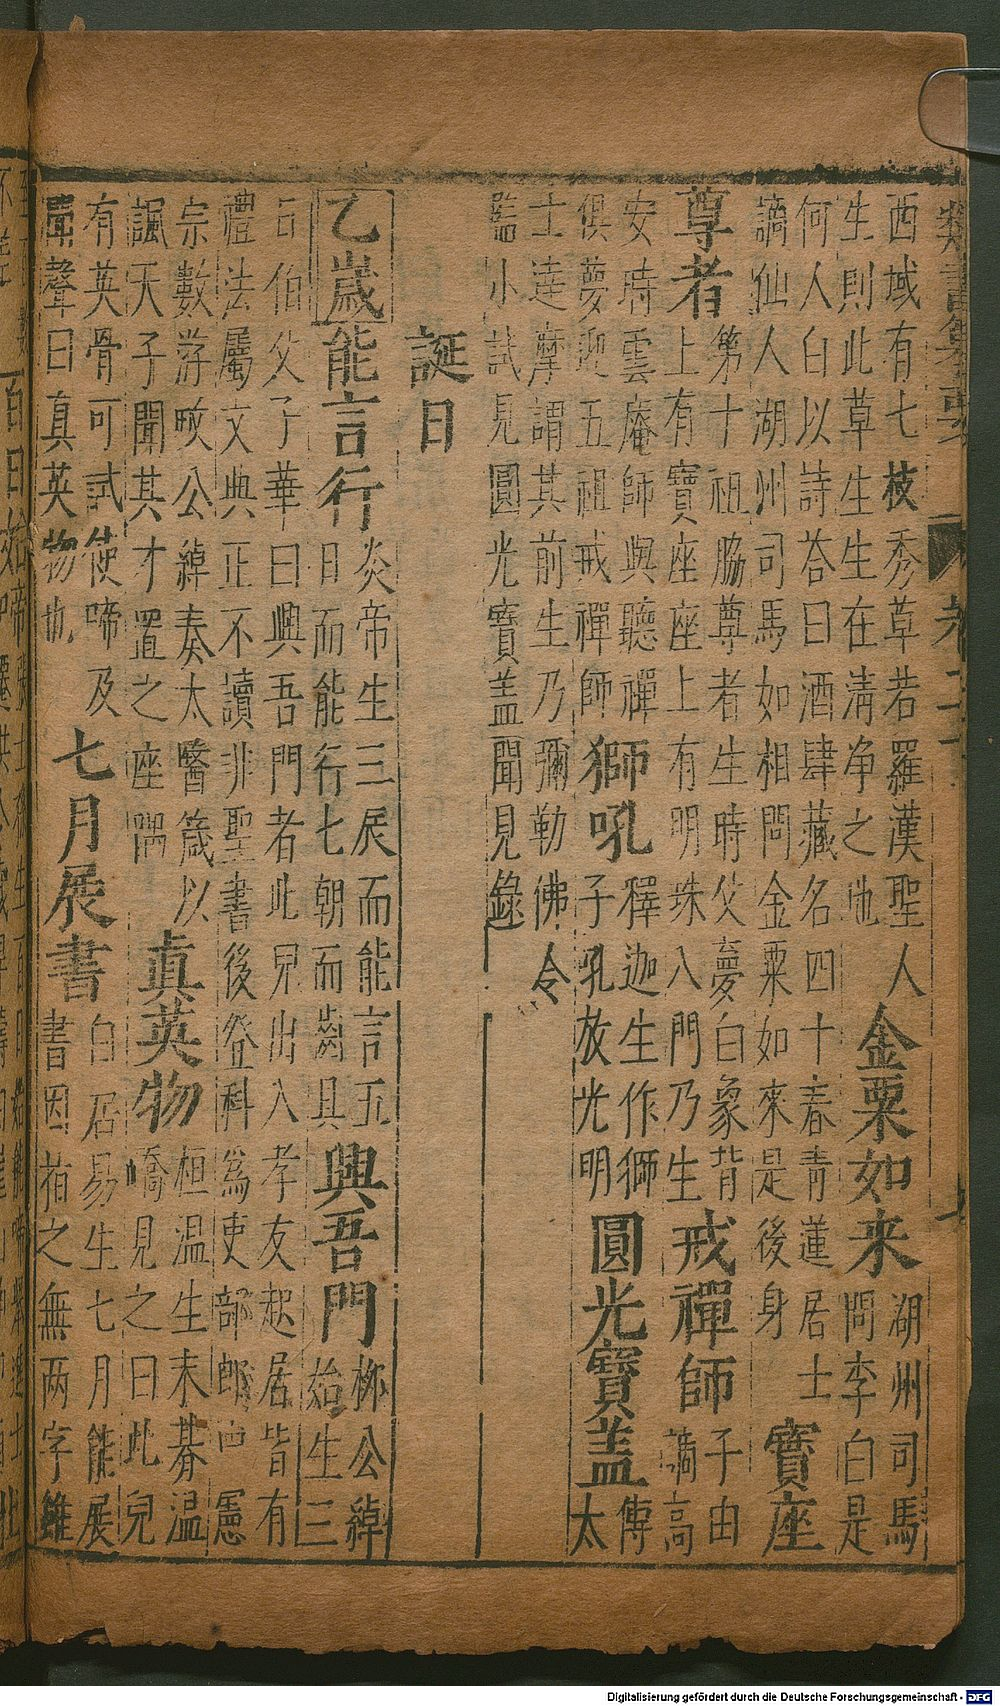 類書纂要 卷二十
西域有七枝秀草若羅漢聖人
生則此草生生在清净之地
金粟如来
湖州司馬
問李白是
何人白以詩荅曰酒肆藏名四十春青蓮居士
謫仙人湖州司馬如相問金粟如來是後身
寶座
尊者
第十祖脇尊者生時父夢白象背
上有寶座座上有明珠八門乃生
戒禪師
子由
謫高
安時雲庵師與聽禪師
俱夢迎五祖戒禪師
獅吼
釋迦生作獅
子吼放光明
圓光寶蓋
傳
太
士達摩謂其前生乃彌勒佛令
監小試見圓光寶蓋聞見錄
誕日
乙歲能言行
炎帝生三辰而能言五
日而能行七朝而齒具
興吾門
柳公綽
始生三
日伯父子華曰興吾門者此兒出入孝友起居皆有
禮法屬文典正不讀非聖書後登科爲吏部郎中憲
宗數游畋公綽奏太醫箴以
諷天子聞其才置之座隅
真英物
桓温生未朞温
嶠見之曰此兒
有英骨可試使啼及
聞聲曰真英物也
七月展書
白居易生七月能展
書因指之無两字雖
Digitalisierung gefördert durch die Deutsche Forschungsgemeinschaft - DFG